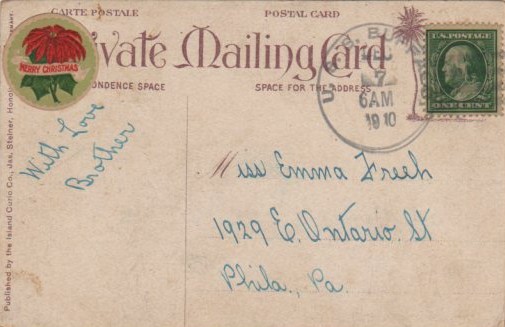 CARTE POSTALE
POSTAL CARD
Private Mailing Card
MERRY CHRISTMAS
CORRESPONDENCE SPACE
SPACE FOR THE ADDRESS
U.S.S.
7
6AM
1910
U.S. POSTAGE
ONE CENT
With Love
Brother
Miss Emma Freeh
1929 E. Ontario. St
Phila., Pa.
Published by the Island Curio Co., Jas, Steiner,